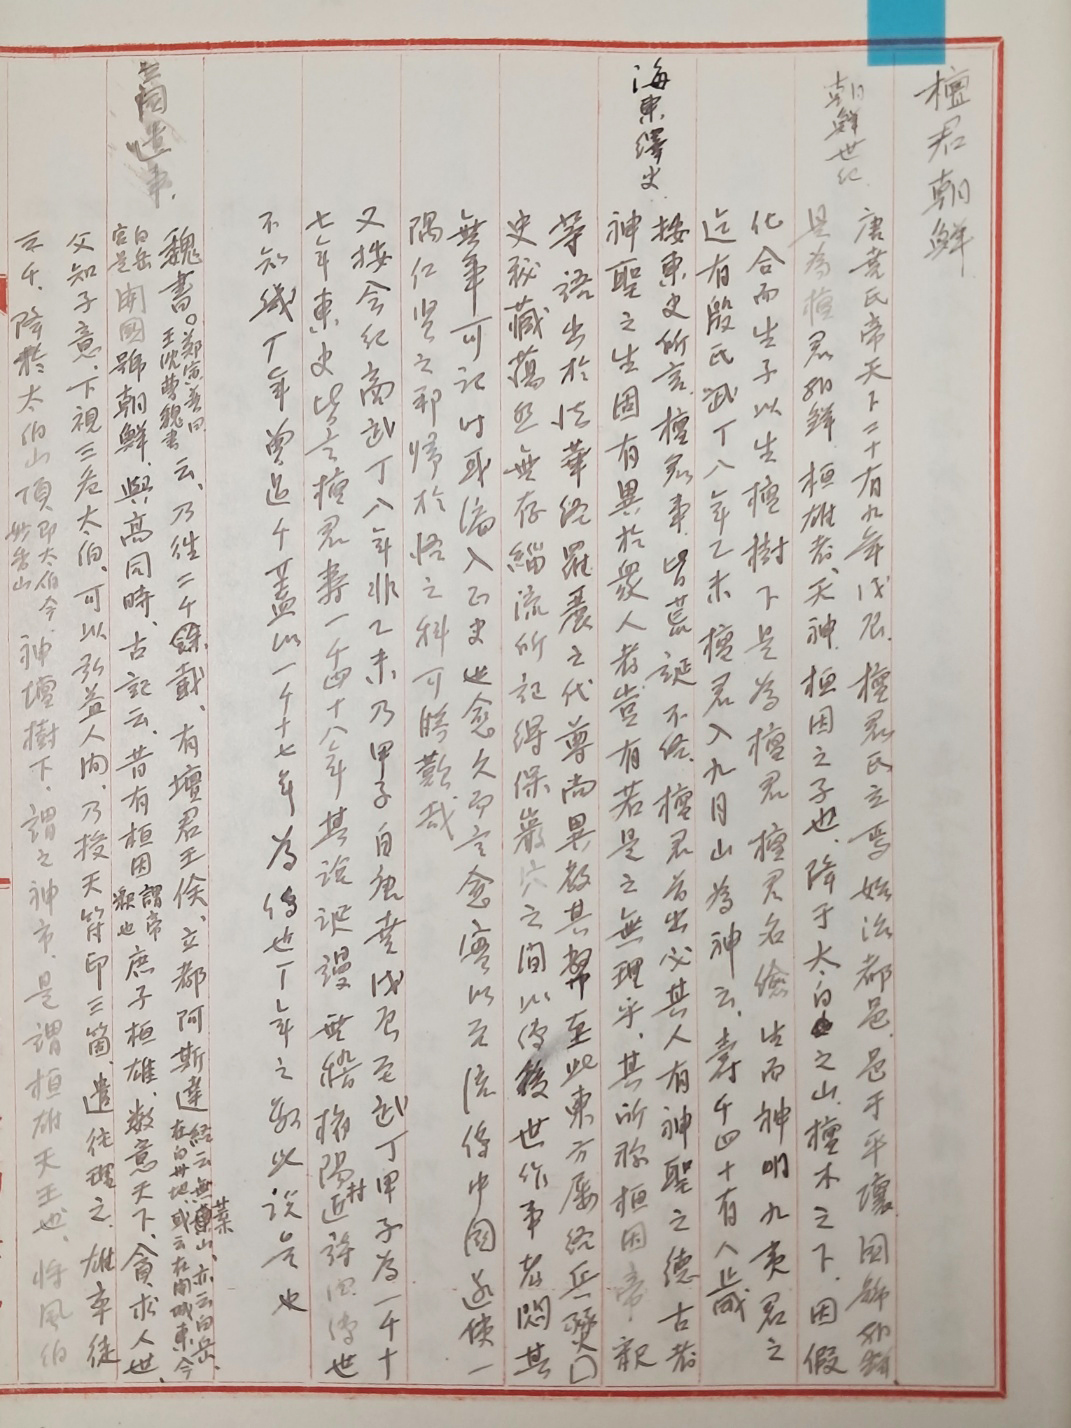 檀君朝鮮
朝鮮世紀
唐堯氏帝天下二十有九年戊辰檀君氏立焉始治都邑邑于平壤國號朝鮮
是為檀君朝鮮桓雄者天神桓因之子也降于太白之山檀木之下因假
化合而生子以生檀樹下是為檀君檀君名儉生而神明九夷君之
迄有殷氏武丁八年乙未檀君入九月山為神云壽千四十有八歲
海東繹史
按東史所言檀君事皆荒誕不經檀君首出必其人有神聖之德古者
神聖之生固有異於眾人者豈有若是之無理乎其所稱桓因帝釈
等語出於法華經羅麗之代尊尚異教其弊至此東方屢經兵燹□
史秘藏蕩然無存緇流所記得保巖穴之間以傳後世作事者悶其
無事可記付或偷入正史也愈久而言愈實以至流傳中國遂使一
隅仁賢之邦歸於怪之科可勝歎哉
又按今紀商武丁八年非乙未乃甲子自唐堯戊辰至武丁甲子為一千十
七年東史皆言檀君壽一千四十八年其說誕謾無稽權陽村近詩曰傳世
不知幾丁年曾過千蓋以一千十七年為傳也丁年之數此說是也
三國遺事
魏書云乃往二千餘載、有壇君王儉、立都阿斯達
鄭寅普曰
王沈曹魏書
經云無葉山、亦云白岳、
在白州地、或云在開城東今
白岳
宮是
開國號朝鮮、與高同時、古記云、昔有桓因
謂帝
釈也
庶子桓雄、數意天下、貪求人世、
父知子意、下視三危太伯、可以弘益人間、乃授天符印三箇、遣往理之、雄率徒
三千、降於太伯山頂
即太伯今
妙香山
神壇樹下、謂之神市、是謂桓雄天王也、將風伯